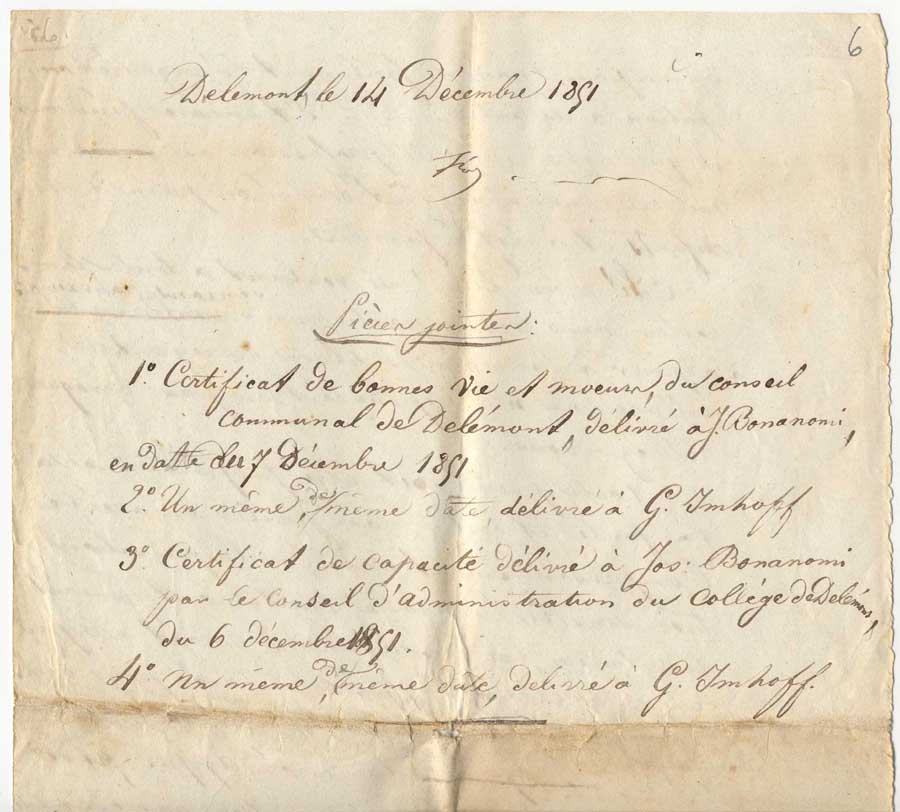 6
Delemont, le 14 Décembre 1851
Pièces jointes:
1º. Certificat de bonnes vie et moeurs, du conseil
communal de Delémont, délivré à J. Bonanomi,
en datte du 7 Décembre 1851
2º. Un même, de même date, délivré à G. Imhoff
3º Certificat de capacité délivré à Jos: Bonanomi
par le Conseil d'administration du Collége de Delémont,
du 6 décembre 1851.
4º Un même, de même date, délivré à G. Imhoff.